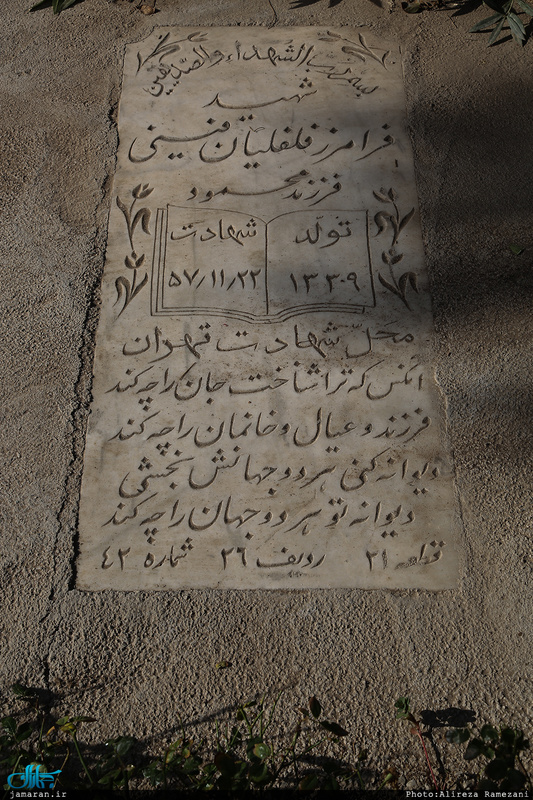 بسم رب الشهداء والصدیقین
شهید
فرامرز فلفلیان فینی
فرزند محمود
تولد شهادت
۱۳۳۰۹ ۵۷/۱۱/۲۲
محل شهادت تهران
انکس که تراشناخت جان راچه کند
فرزند و عیال و خانمان راچه کند
دیوانه کنی هر دو جهانش بخشی
دیوانه تو هر دو جهان راچه کند
قطعه ۲۱ ردیف ۲۶ شماره ۴۲
جماران
jamaran.ir
Photo:Alireza Ramezani